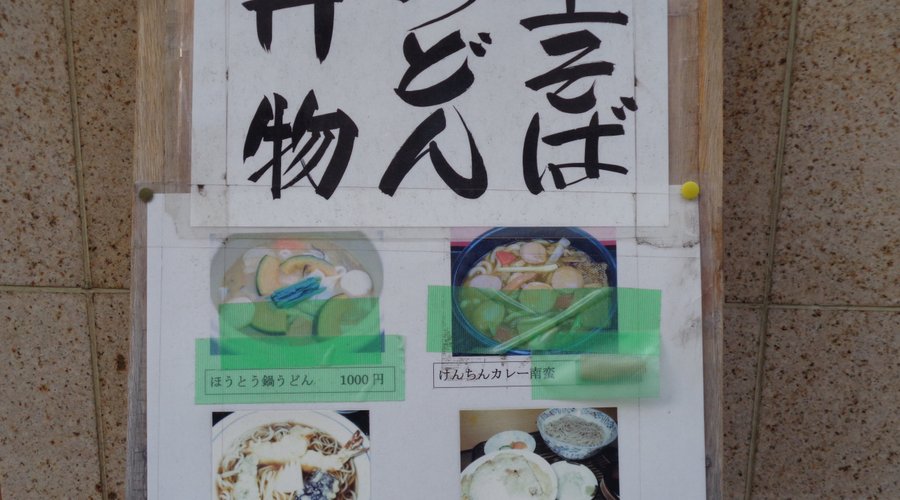 そば
うどん
丼物
ほうとう鍋うどん 1000円
けんちんカレー南蛮